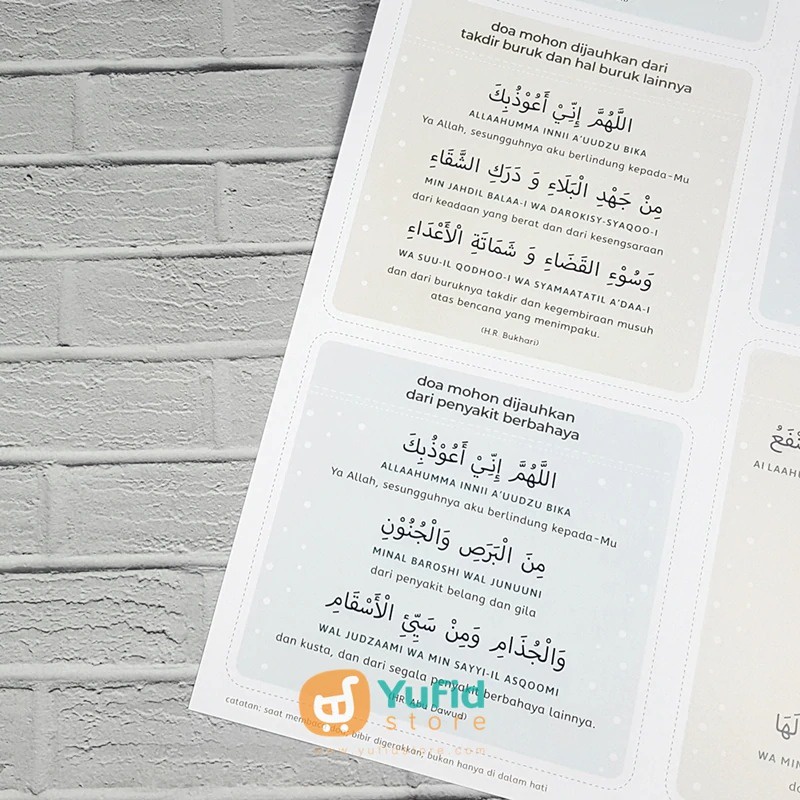 doa mohon dijauhkan dari
takdir buruk dan hal buruk lainnya
اللَّهُمَّ إِنِّيْ أَعُوْذُبِكَ
ALLAAHUMMA INNII A'UUDZU BIKA
Ya Allah, sesungguhnya aku berlindung kepada-Mu
مِنْ جَهْدِ الْبَلَاءِ وَ دَرَكِ الشَّقَاءِ
MIN JAHDIL BALAA-I WA DAROKISY-SYAQOO-I
dari keadaan yang berat dan dari kesengsaraan
وَسُوْءِ القَضَاءِ وَ شَمَاتَةِ الْأَعْدَاءِ
WA SUU-IL QODHOO-I WA SYAMAATATIL A'DAA-I
dan dari buruknya takdir dan kegembiraan musuh
atas bencana yang menimpaku.
(H.R. Bukhari)
doa mohon dijauhkan
dari penyakit berbahaya
اللَّهُمَّ إِنِّيْ أَعُوْذُبِكَ
ALLAAHUMMA INNII A'UUDZU BIKA
Ya Allah, sesungguhnya aku berlindung kepada-Mu
مِنَ الْبَرَصِ وَالْجُنُوْنِ
MINAL BAROSHI WAL JUNUUNI
dari penyakit belang dan gila
وَالْجُذَامِ وَمِنْ سَيِّئِ الْأَسْقَامِ
WAL JUDZAAMI WA MIN SAYYI-IL ASQOOMI
dan kusta, dan dari segala penyakit berbahaya lainnya.
(HR. Abu Dawud)
catatan: saat bibir digerakkan, bukan hanya di dalam hati
Yufid
store
www.yufidstore.com
AI LAAH
WA MIN